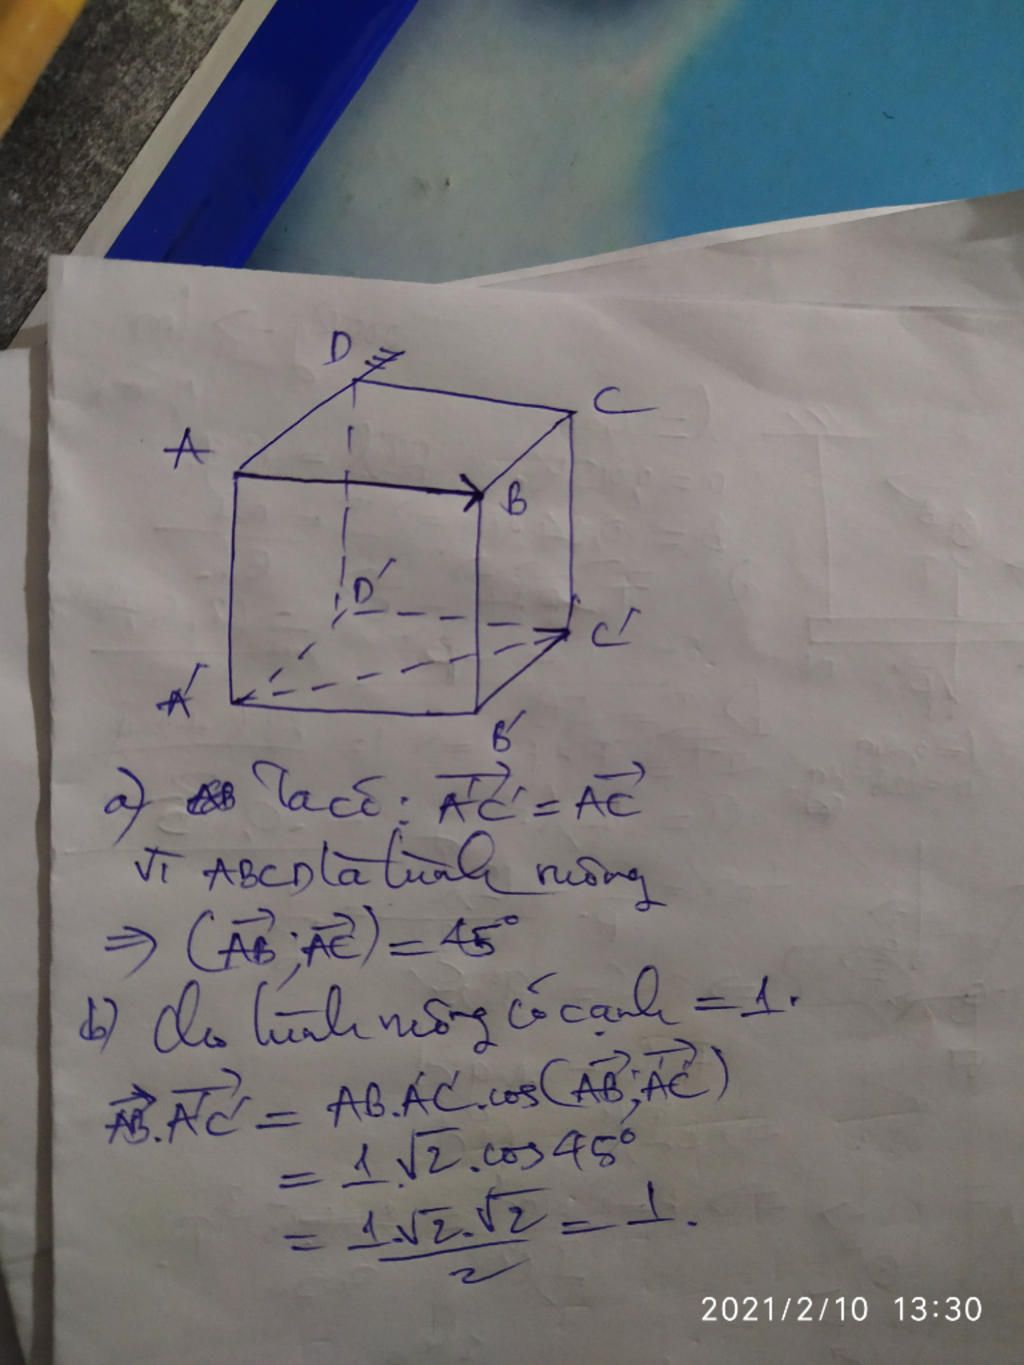 D
C
A
B
D'
C'
A'
B'
a) Ta có: A'C' = AC
Vì ABCD là hình vuông
⇒ (AB; AC) = 45°
b) Cho hình vuông có cạnh = 1.
AB.A'C' = AB.A'C'.cos(AB; A'C')
= 1.√2.cos45°
= 1.√2.√2/2 = 1.
2021/2/10 13:30